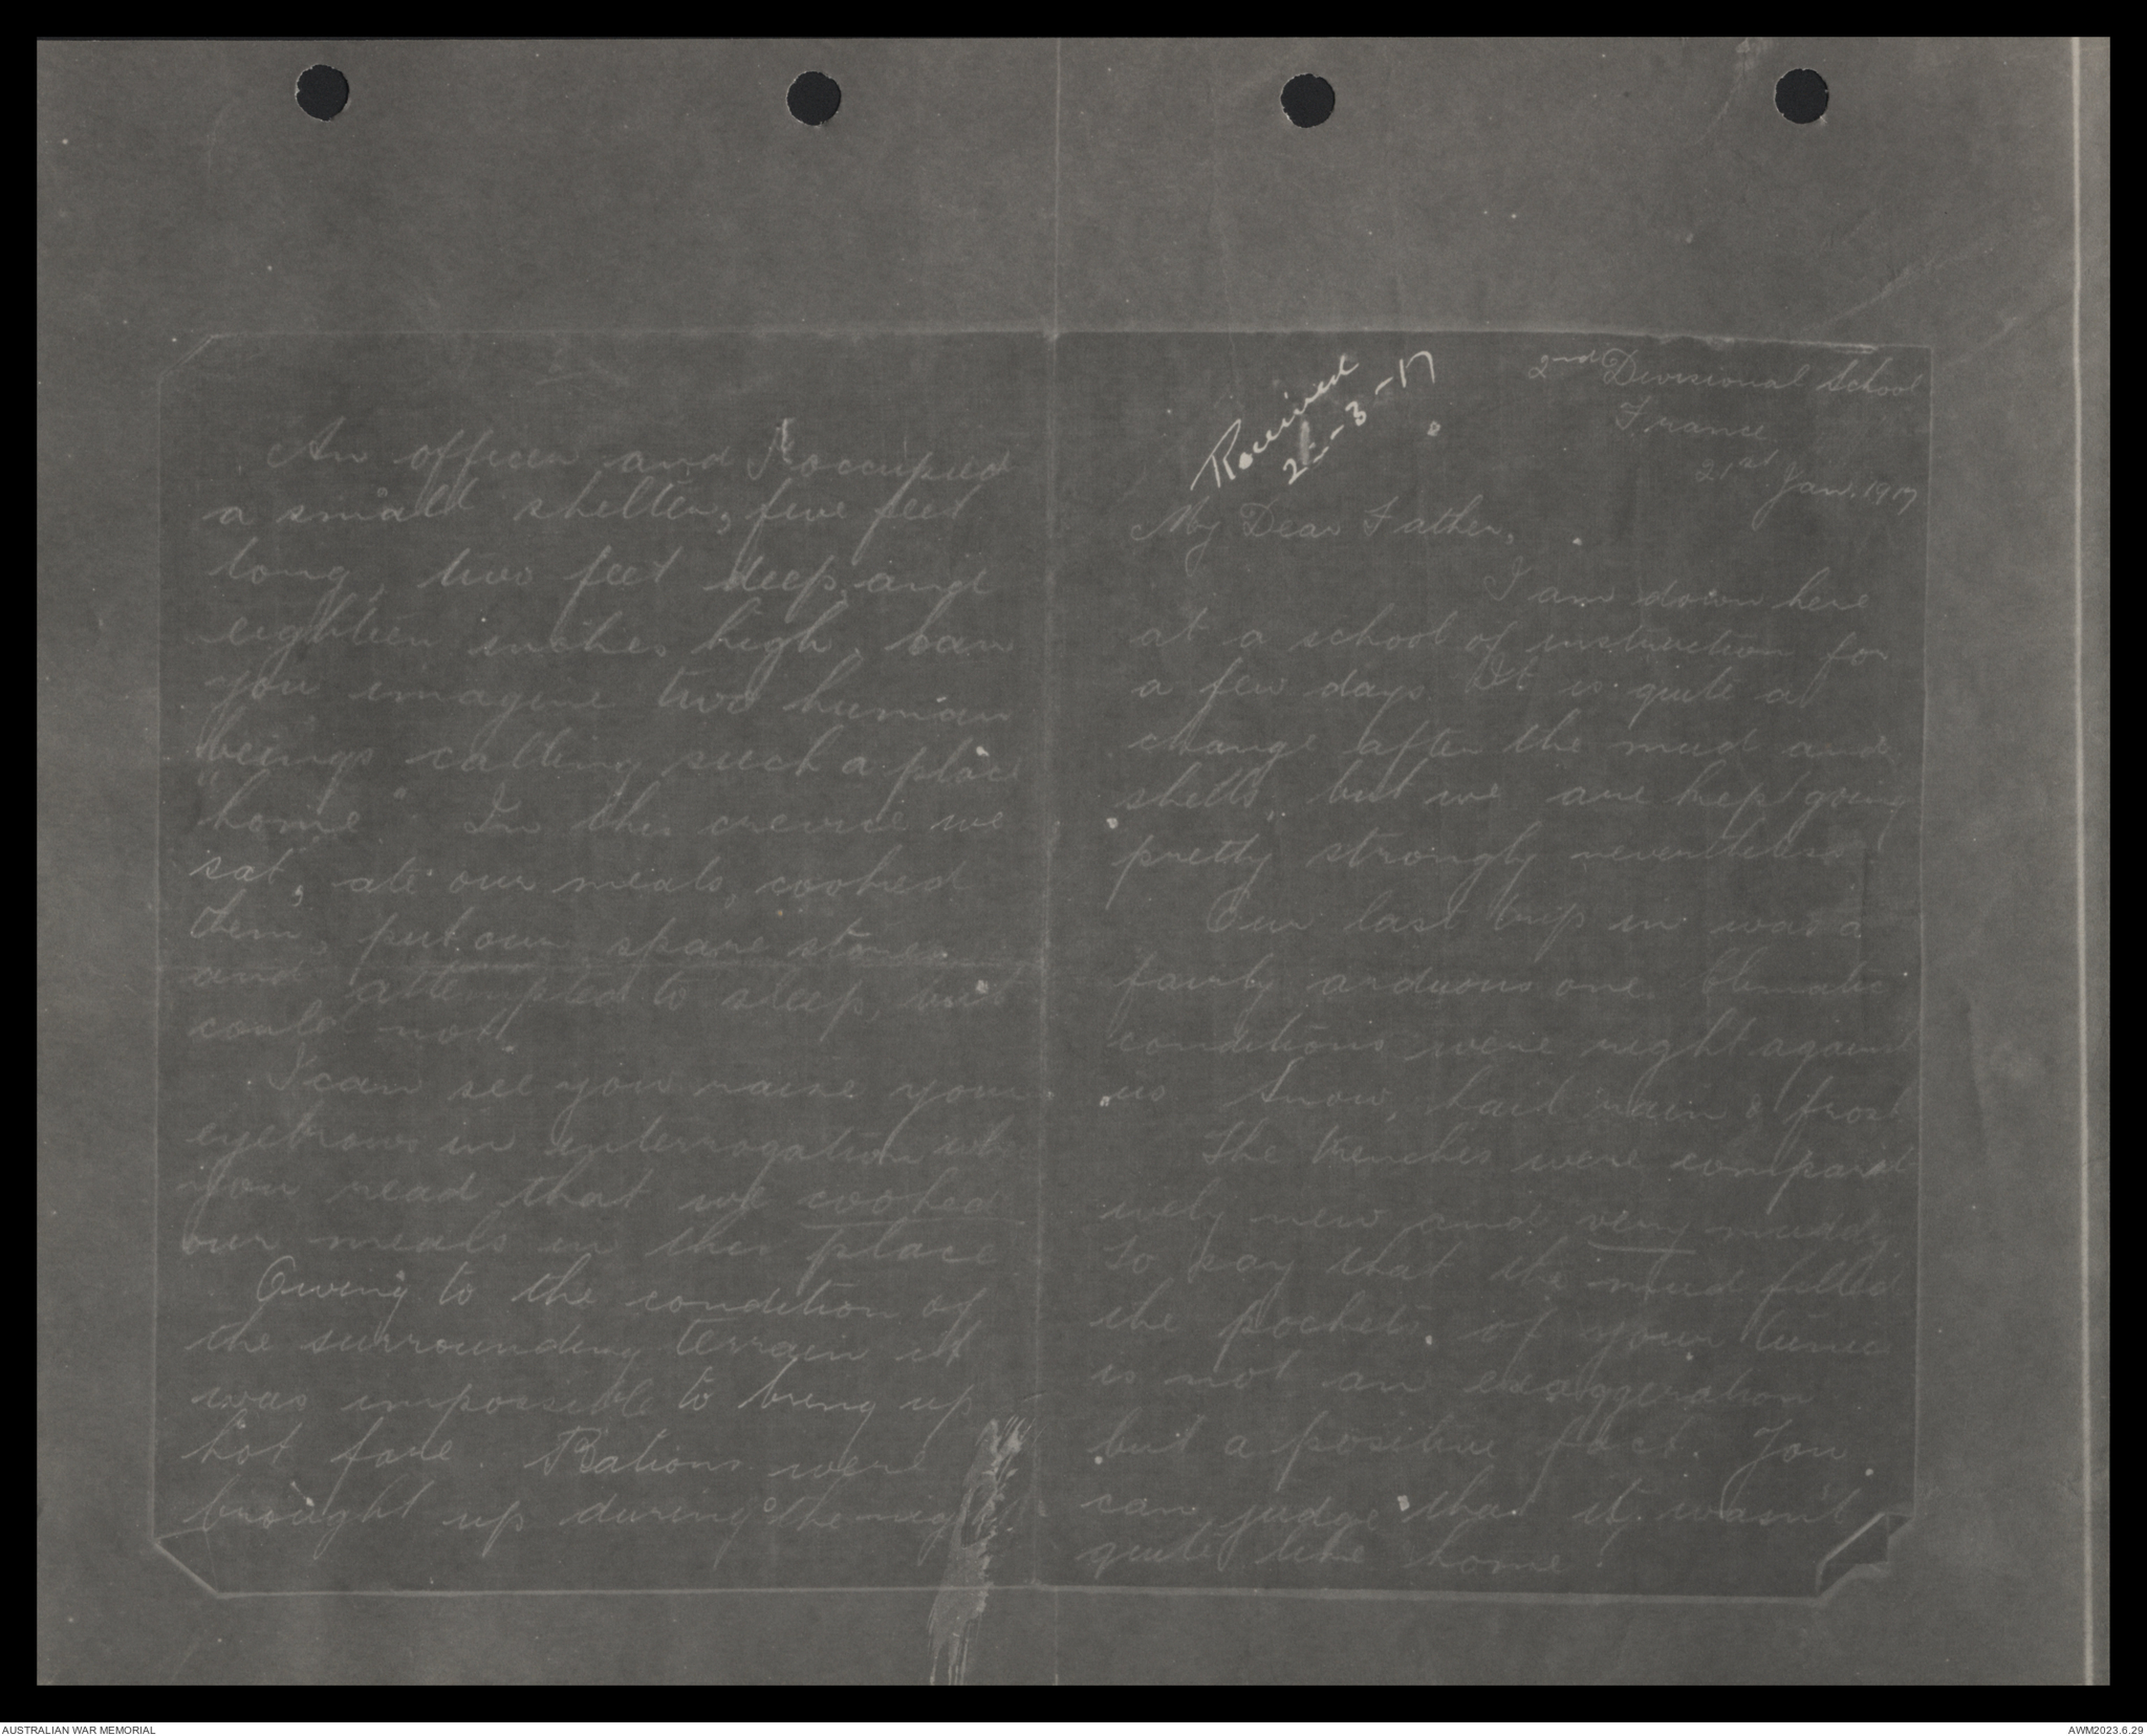 Received
2-3-17
2nd Divisional School
France
21st Jan. 1917
My Dear Father,
I am down here
at a school of instruction for
a few days. It is quite a
change after the mud and
shells, but we are kept going
pretty strongly nevertheless
Our last trip in was a
fairly arduous one. Climatic
conditions were right against
us. Snow, hail rain & frost
The trenches were comparat
ively new and very muddy
To say that the mud filled
the pockets of your tunic
is not an exaggeration
but a positive fact. You
can judge that it wasn't
quite like home.
An officer and I occupied
a small shelter, five feet
long, two feet deep, and
eighteen inches high, can
you imagine two human
beings calling such a place
"home". In this crevice we
sat, ate our meals, cooked
them, put our spare stores
and attempted to sleep, but
could not.
I can see you raise your
eyebrows in interrogation when
you read that we cooked
our meals in this place
Owing to the condition of
the surrounding terrain it
was impossible to bring up
hot fare. Rations were
brought up during the night
AUSTRALIAN WAR MEMORIAL
AWM2023.6.29